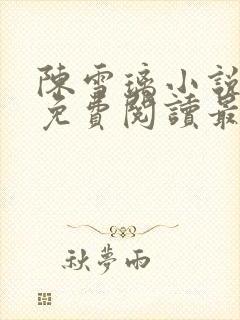 陳雪璃小說
免費閱讀最
秋夢雨